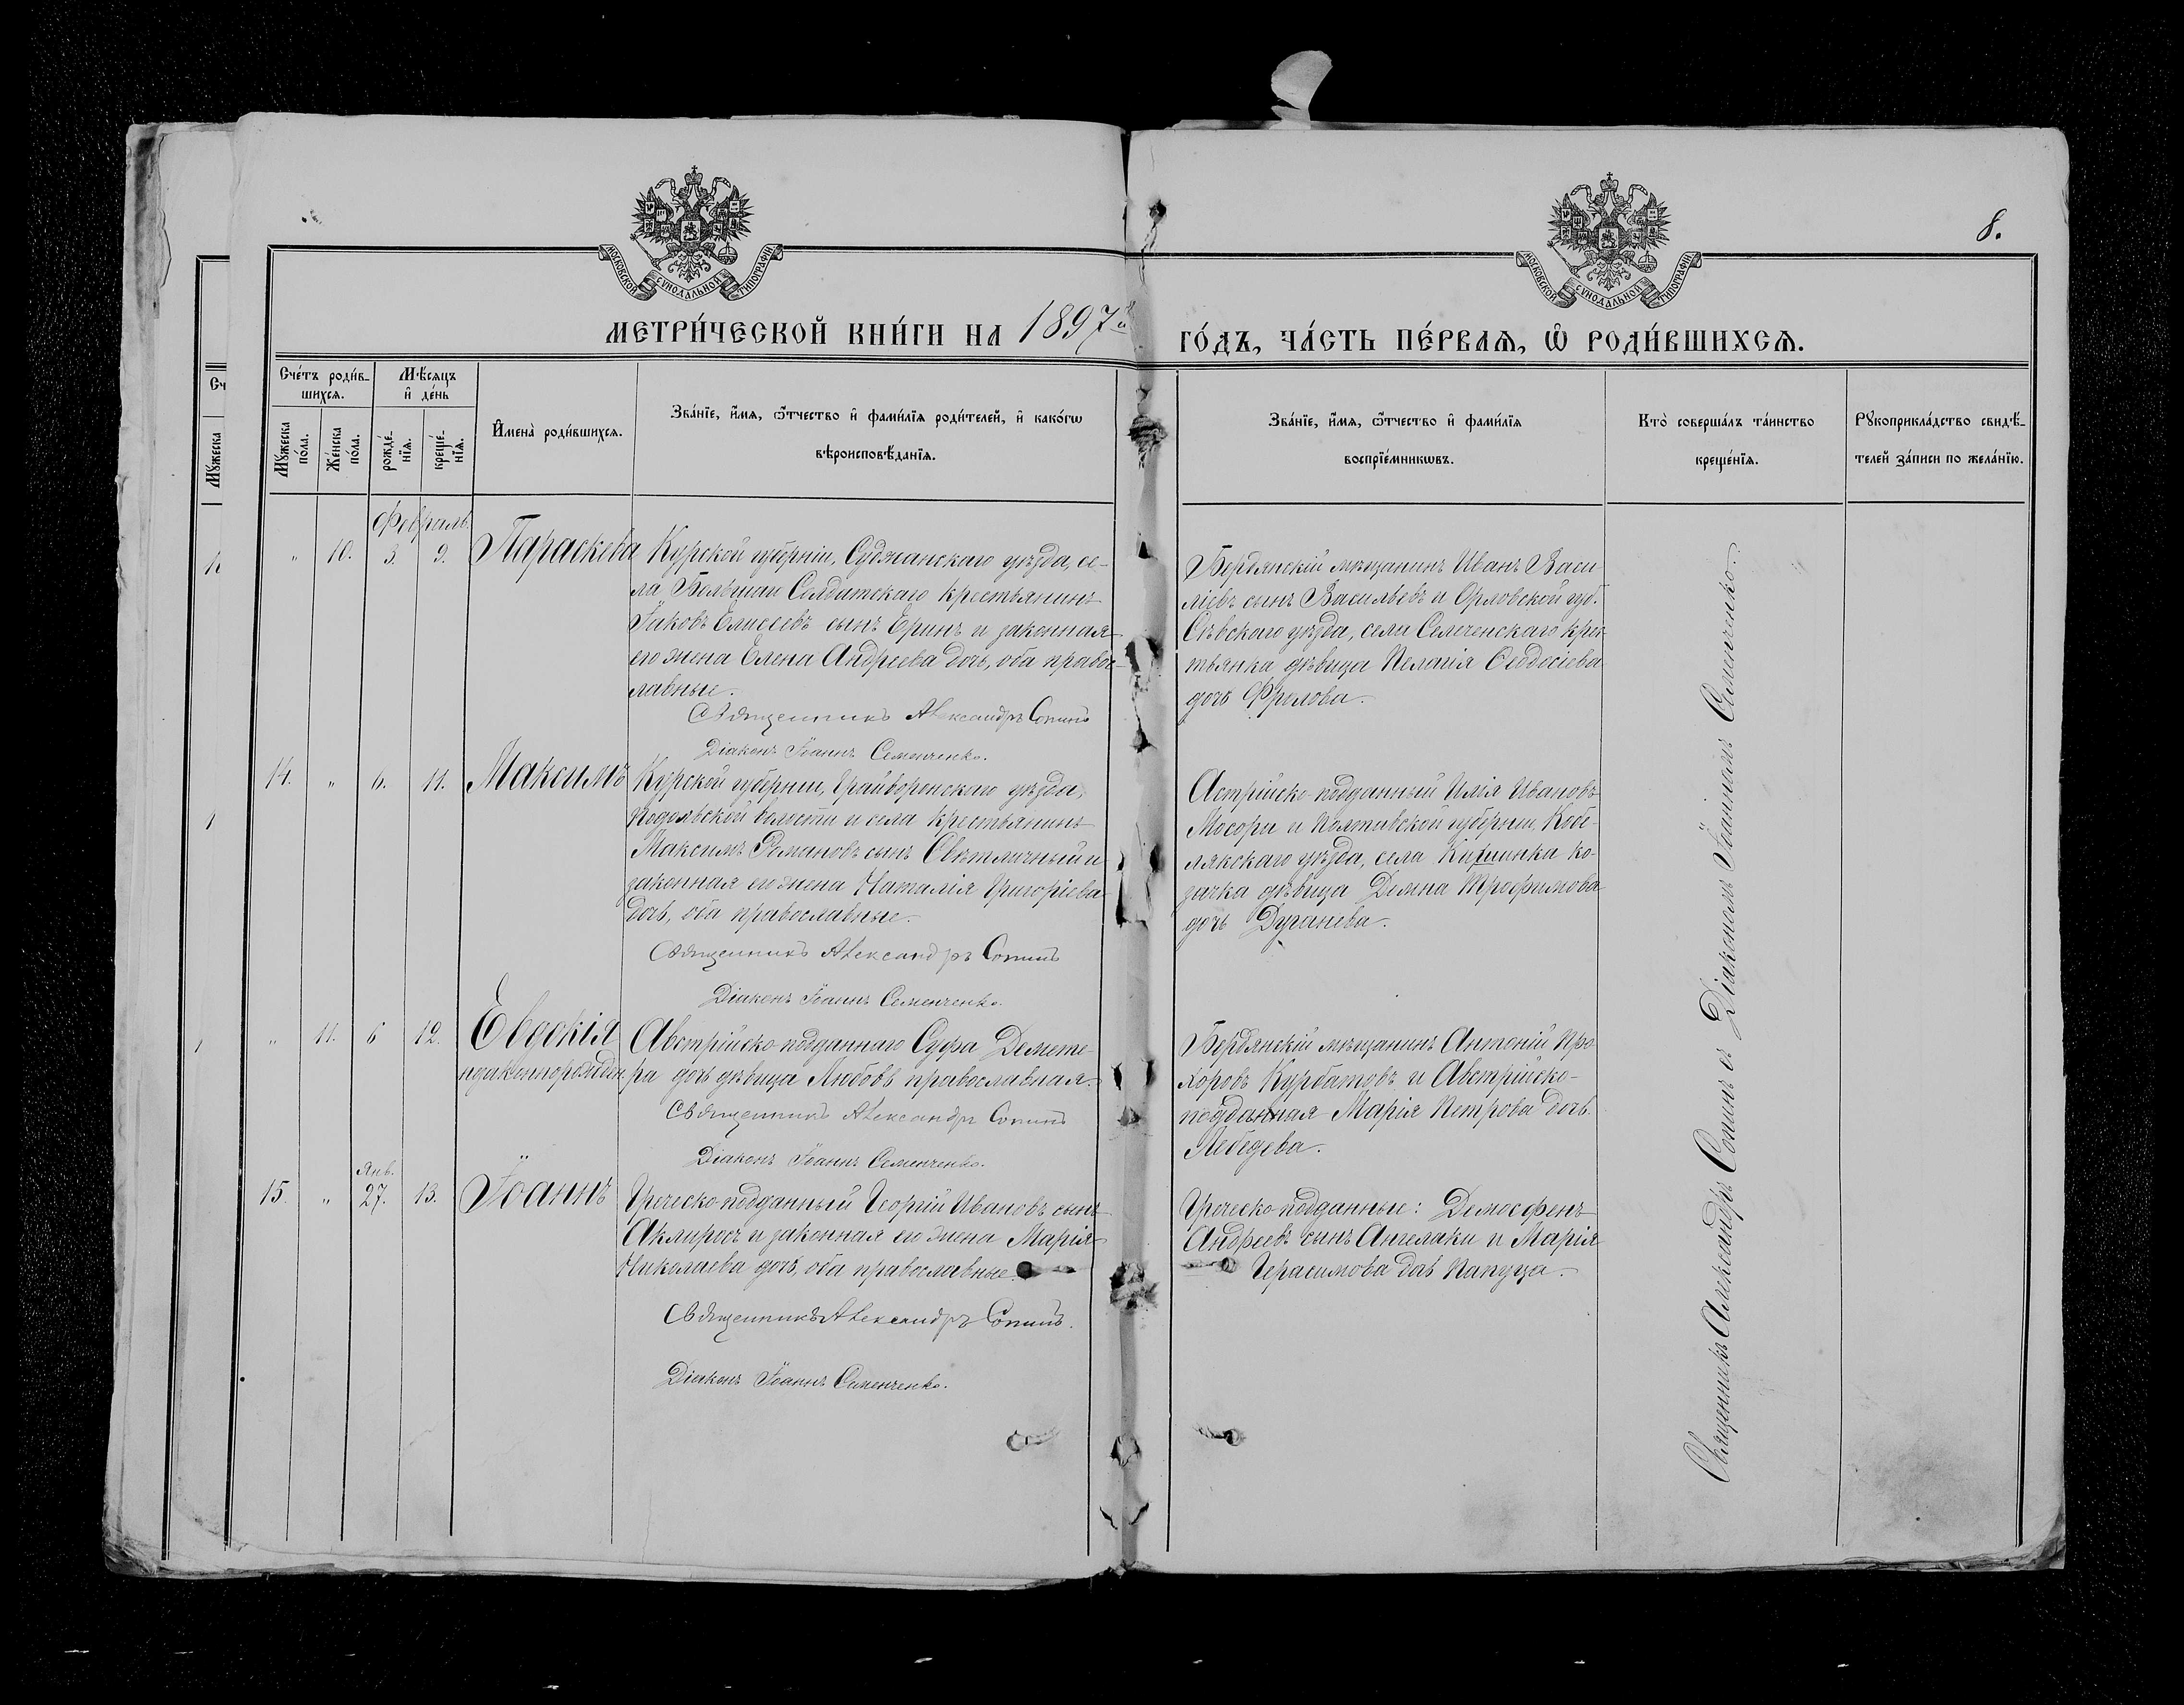 МОСКОВСКОЙ СУНОДАЛЬНОЙ ТИПОГРАФІИ
МОСКОВСКОЙ СУНОДАЛЬНОЙ ТИПОГРАФІИ
8.
МЕТРИ́ЧЕСКОЙ КНИ́ГИ НА 1897й ГО́ДЪ, ЧА́СТЬ ПЕ́РВАѦ, Ѡ҆ РОДИ́ВШИХСѦ.
Сч
Мꙋжеска
Сче́тъ роди́в-
шихсѧ.
Мꙋжеска по́ла.
Же́нска по́ла.
Мѣ́сѧцъ
и҆ де́нь
рожде́-
нїѧ.
креще́-
нїѧ.
И҆мена̀ роди́вшихсѧ.
Зва́нїе, и҆́мѧ, ѻ҆́тчество и҆ фами́лїѧ роди́телей, и҆ како́гѡ
вѣроисповѣ́данїѧ.
Зва́нїе, и҆́мѧ, ѻ҆́тчество и҆ фами́лїѧ
воспрїе́мникѡвъ.
Кто̀ соверша́лъ та́инство
креще́нїѧ.
Рꙋкоприкла́дство свидѣ́-
телей за́писи по жела́нїю.
Февраль.
" 10. 3. 9. Параскева
Курской губерніи, Суджанскаго уѣзда, се-
ла Большаго Солдатскаго крестьянинъ
Іаковъ Елисеевъ сынъ Еринъ и законная
его жена Елена Андреева дочь, оба правос-
лавные.
Священникъ Александръ Сопинъ
Діаконъ Іоаннъ Семенченко.
Бердянскій мѣщанинъ Иванъ Васи-
ліевъ сынъ Васильевъ и Орловской губ.
Сѣвскаго уѣзда, села Селеченскаго крес-
тьянка дѣвица Пелагія Ѳеодосіева
дочь Фролова.
14. " 6. 11. Максимъ
Курской губерніи, Грайворонскаго уѣзда,
волости и села крестьянинъ
Максимъ Романовъ сынъ Свѣтличный и
законная его жена Наталія Григоріева
дочь, оба православные.
Священникъ Александръ Сопинъ
Діаконъ Іоаннъ Семенченко.
Астрійско-подданный Илія Ивановъ
Мосори и Полтавской губерніи, Кобе-
лякскаго уѣзда, села Кишинка ко-
зачка дѣвица Домна Трофимова
дочь
" 11. 6 12. Евдокія
незаконнорожден.
Австрійско-подданнаго Суфа Демете-
ра дочь дѣвица Любовь православная.
Священникъ Александръ Сопинъ
Діаконъ Іоаннъ Семенченко.
Бердянскій мѣщанинъ Антоній Про-
хоровъ Курбатовъ и Австрійско-
подданная Марія Петрова дочь
Лебедева.
Янв.
15. " 27. 13. Іоаннъ
Греческо-подданный Георгій Ивановъ сынъ
Аклиросъ и законная его жена Марія
Николаева дочь, оба православные.
Священникъ Александръ Сопинъ.
Діаконъ Іоаннъ Семенченко.
Греческо-подданные: Демосфенъ
Андреевъ сынъ Ангелаки и Марія
Герасимова дочь Папуца.
Священникъ Александръ Сопинъ съ Діакономъ Іоанномъ Семенченко.